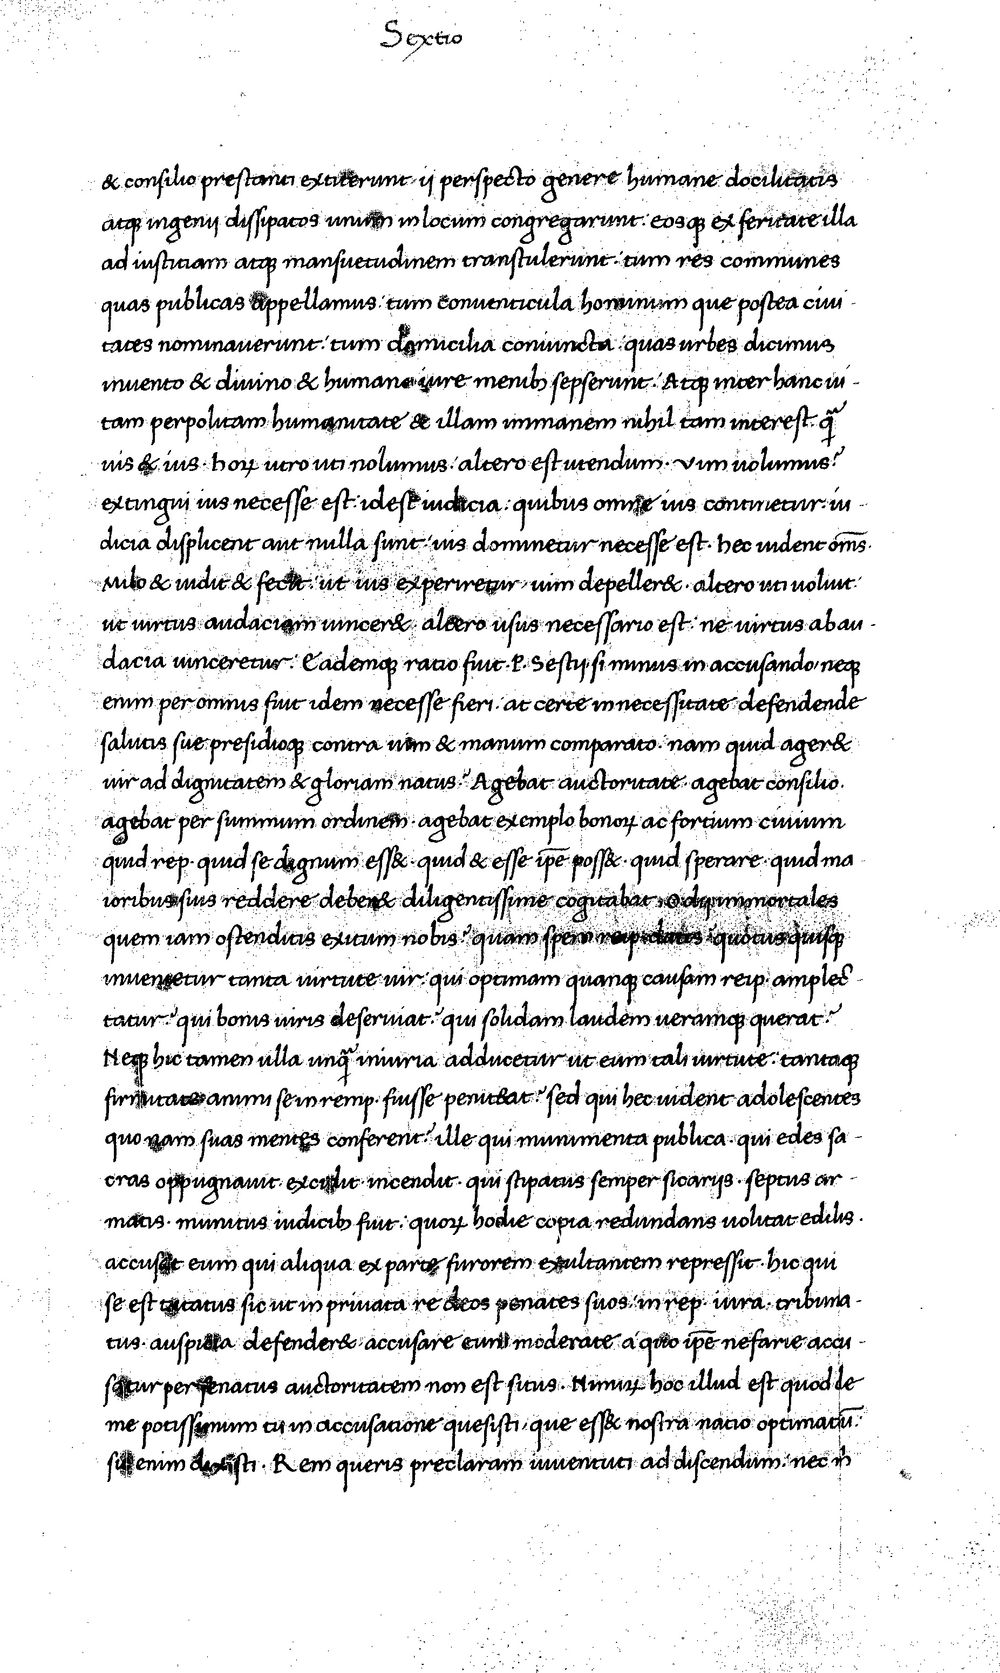 Sextio
& consilio prestanti extiterunt · ii perspecto genere humane docilitatis
atq; ingenii dissipatos unum in locum congregarunt · eosq; ex feritate illa
ad iustitiam atq; mansuetudinem transtulerunt · tum res communes
quas publicas appellamus · tum conventicula hominum que postea civi-
tates nominaverunt · tum domicilia coniuncta · quas urbes dicimus
invento & divino & humano iure menib; sepserunt · Atq; inter hanc vi-
tam perpolitam humanitate & illam immanem nihil tam interest · q̄
vis & ius · horꝝ utro uti nolumus · altero est utendum · vim volumus?
extingui ius necesse est · id est iudicia · quibus omne ius continetur · iu-
dicia displicent aut nulla sunt · vis dominetur necesse est · hec vident om̄s ·
Milo & vidit & fecit · ut ius experiretur · vim depeller& · altero uti voluit ·
ut virtus audaciam vincer& · altero usus necessario est · ne virtus ab au-
dacia vinceretur · Eademq; ratio fuit · P. Sestii · si minus in accusando · neq;
enim per omnis fuit idem necesse fieri · at certe in necessitate defendende
salutis sue presidioq; contra vim & manum comparato · nam quid ager&
vir ad dignitatem & gloriam natus? Agebat auctoritate · agebat consilio ·
agebat per summum ordinem · agebat exemplo bonorꝝ ac fortium civium
quid rep · quid se dignum ess& · quid & esse ip̄e poss& · quid sperare · quid ma
ioribus suis reddere deber& diligentissime cogitabat · O dii immortales
quem iam ostenditis exitum nobis? quam spem reip datis quotus quisq;
invenietur tanta virtute vir · qui optimam quanq; causam reip · amplec̄-
tatur? qui bonis viris deserviat? qui solidam laudem veramq; querat?
Neq; hic tamen ulla unq̄ iniuria adducetur ut eum tali virtute · tantaq;
firmitate animi se in remp · fuisse penit&at? sed qui hec vident adolescentes
quo nam suas mentes conferent? ille qui munimenta publica · qui edes sa-
cras oppugnavit · excidit · incendit · qui stipatus semper sicariis · septus ar-
matis · munitus iudicib; fuit · quorꝝ hodie copia redundans volitat edilis ·
accusat eum qui aliqua ex parte furorem exultantem repressit · hic qui
se est tutatus sic ut in privata re deos penates suos · in rep · iura · tribuna-
tus · auspicia defender& · accusare eum moderate a quo ip̄e nefarie accu-
satur per senatus auctoritatem non est situs · Nimirꝝ hoc illud est quod de
me potissimum tu in accusatione quesisti · que ess& nostra natio optimatū ·
sic enim dixisti · Rem queris preclaram iuventuti ad discendum · nec m̄